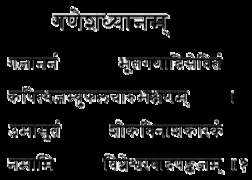 गणेशध्यानम्
गजाननं भूतगणादिसेवितं
कपित्थजम्बूफलचारुभक्षणम् ।
उमासुतं शोकविनाशकारकं
नमामि विघ्नेश्वरपादपङ्कजम् ॥